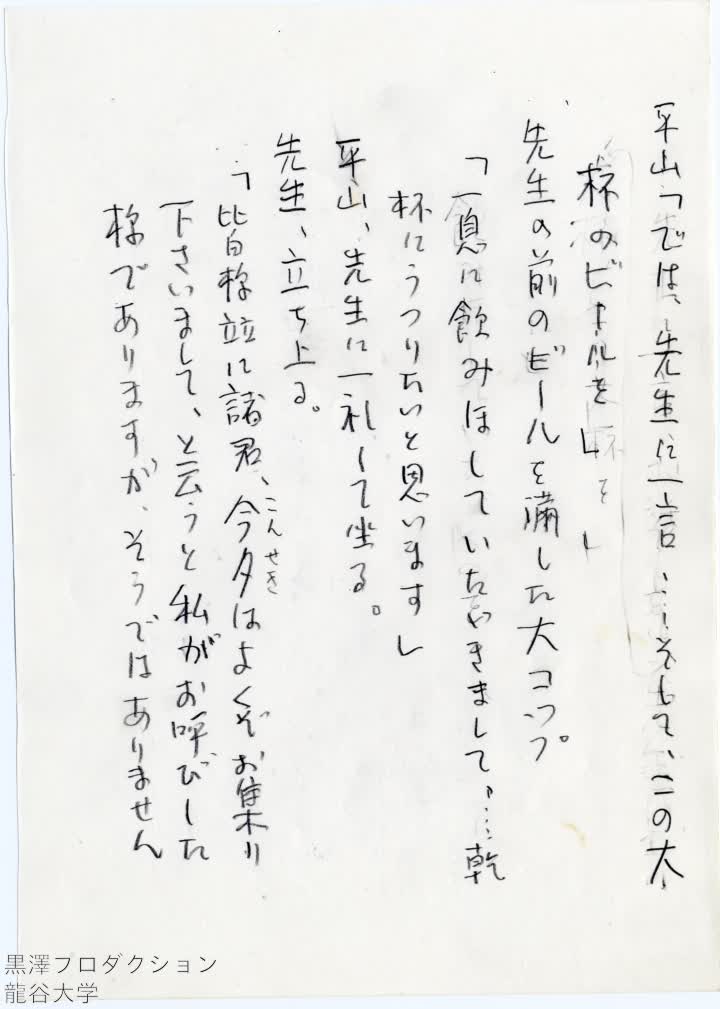 平山「では、先生に一言、…そして、この大
杯のビールを」
先生の前のビールを満した大コップ。
「一息に飲みほしていたゞきまして、…乾
杯にうつりたいと思います」
平山、先生に一礼して坐る。
先生、立ち上る。
「皆様並に諸君、今夕はよくぞお集り
こんせき
下さいまして、と云うと私がお呼びした
様でありますが、そうではありません
黒澤プロダクション
龍谷大学